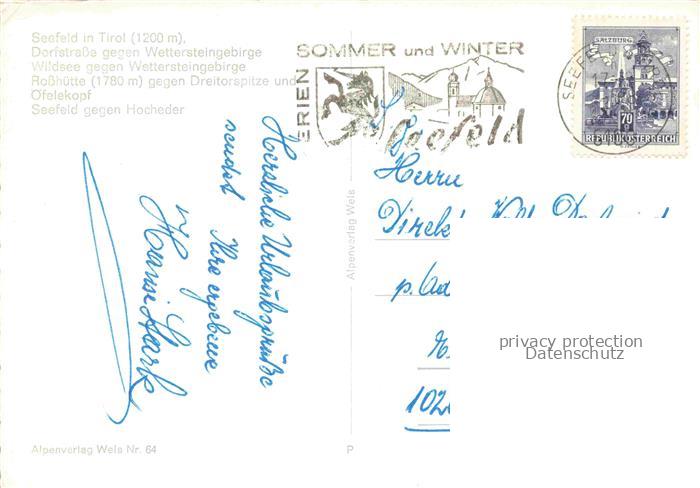 Seefeld in Tirol (1200 m),
Dorfstraße gegen Wettersteingebirge
Wildsee gegen Wettersteingebirge
Roßhütte (1780 m) gegen Dreitorspitze und
Öfelekopf
Seefeld gegen Hocheder
SOMMER und WINTER
ERIEN
Seefeld
SALZBURG
70
REPUBLIK ÖSTERREICH
Herzliche Urlaubsgrüße
sendet Ihre ergebene
Hansi
Alpenverlag Wels
Herrn
p. Ad
102
privacy protection
Datenschutz
Alpenverlag Wels Nr. 64
P